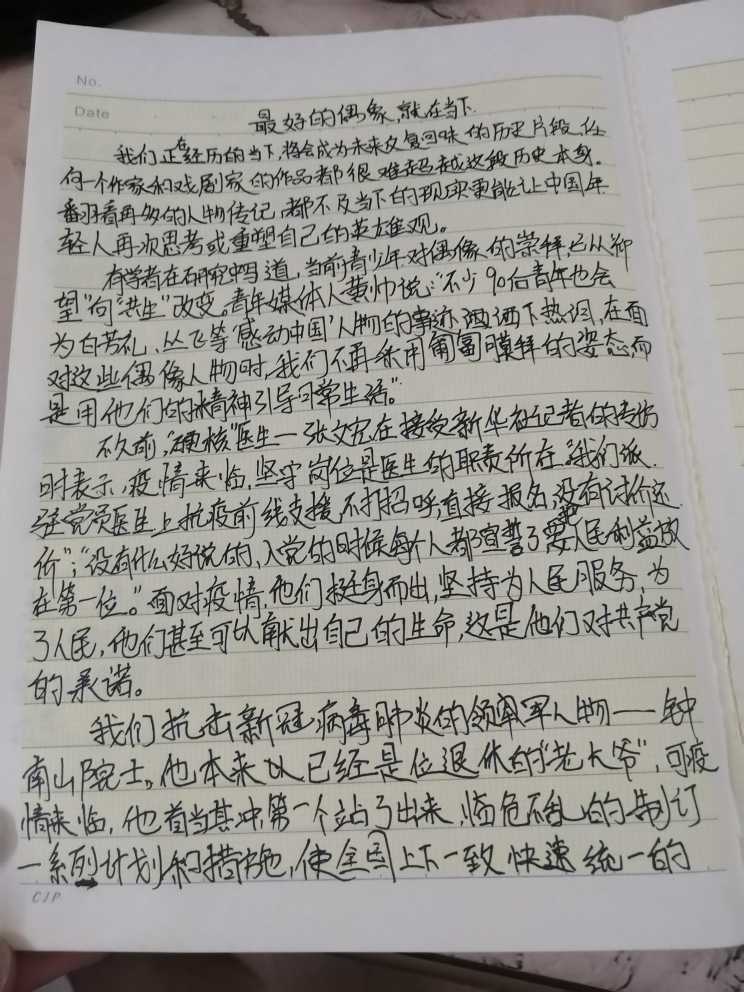 No.
Date
最好的偶像,就在当下
我们正在经历的当下,将会成为未来反复回味的历史片段,任
何一个作家和戏剧家的作品都很难超越这段历史本身。
翻看再多的人物传记,都不及当下的现实更能让中国年
轻人再次思考或重塑自己的英雄观。
有学者在研究中写道,当前青少年对偶像的崇拜,已从“仰
望”向“共生”改变。青年媒体人黄帅说:“不少90后青年也会
为白芳礼、丛飞等‘感动中国’人物的事迹洒下热泪,在面
对这些偶像人物时,我们不再采用匍匐膜拜的姿态而
是用他们的精神引导日常生活。”
不久前,“硬核”医生—张文宏在接受新华社记者的专访
时表示,疫情来临,坚守岗位是医生的职责所在。“我们派
驻党员医生上抗疫前线支援,不打招呼,直接报名,没有讨价还
价”;“没有什么好说的,入党的时候每个人都宣誓了要把人民利益放
在第一位。”面对疫情,他们挺身而出,坚持为人民服务,为
了人民,他们甚至可以献出自己的生命,这是他们对共产党
的承诺。
我们抗击新冠病毒肺炎的领军人物——钟
南山院士。他本来以已经是位退休的“老大爷”,可疫
情来临,他首当其冲,第一个站了出来,临危不乱的制订
一系列计划和措施,使全国上下一致快速统一的
CJP